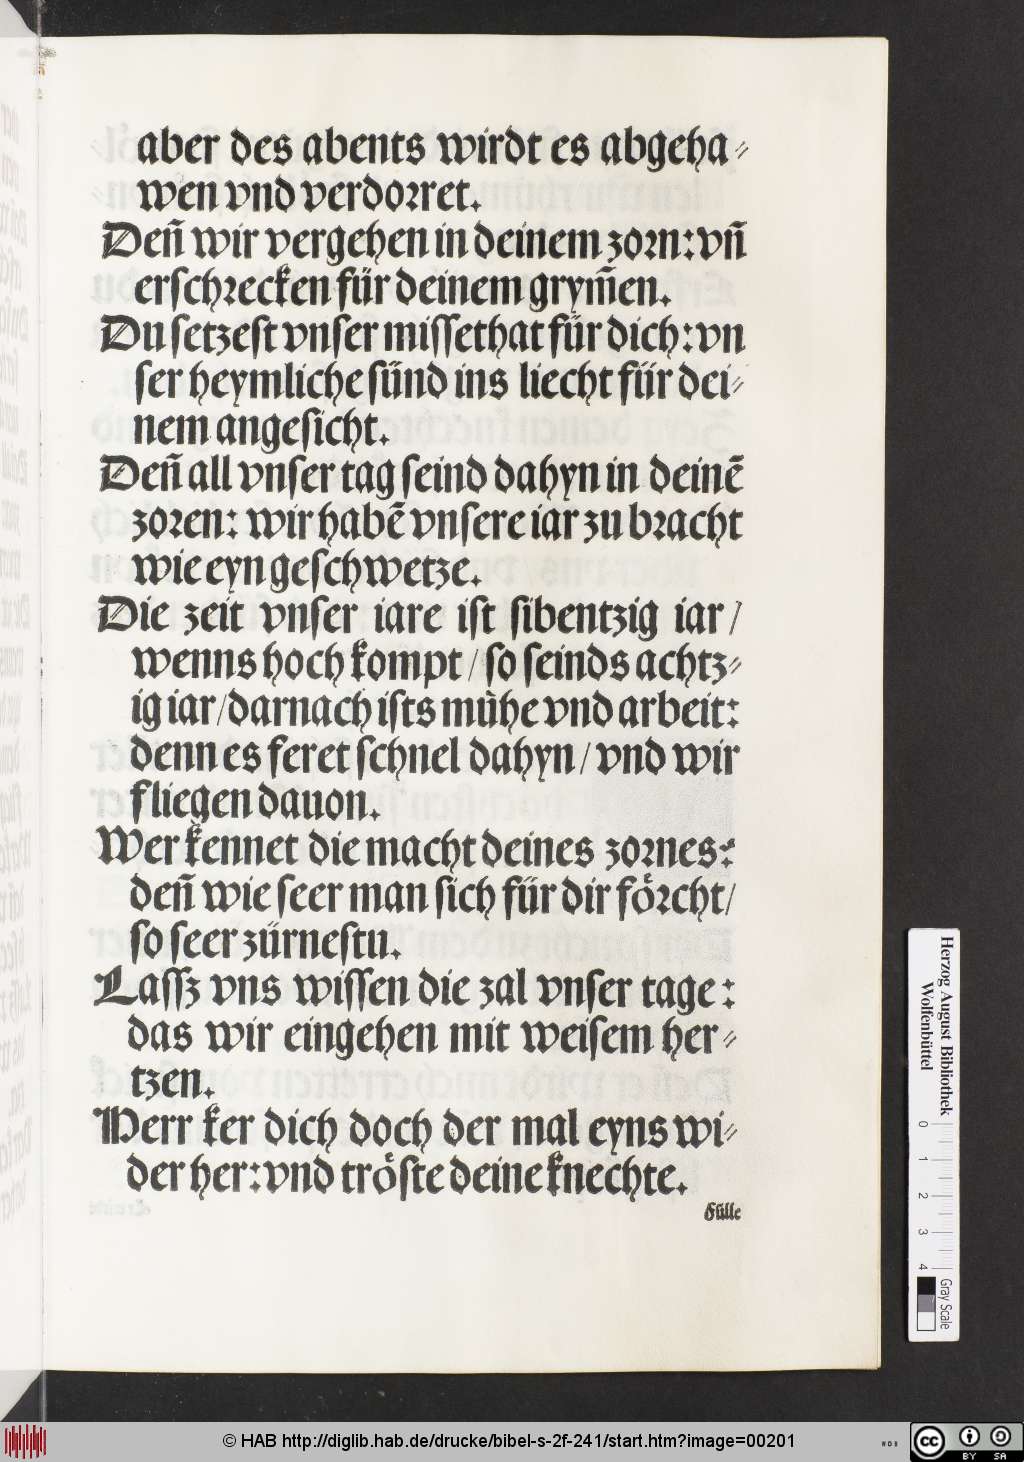 aber des abents wirdt es abgeha⸗
wen vnd verdorret.
Deñ wir vergehen in deinem zorn: vñ
erſchrecken für deinem grym̄en.
Du ſetzeſt vnſer miſſethat für dich: vn
ſer heymliche ſünd ins liecht für dei⸗
nem angeſicht.
Deñ all vnſer tag ſeind dahyn in deinē
zoren: wir habē vnſere iar zu bracht
wie eyn geſchwetze.
Die zeit vnſer iare iſt ſibentzig iar/
wenns hoch kompt/ſo ſeinds achtz⸗
ig iar/darnach iſts mühe vnd arbeit:
denn es feret ſchnel dahyn/vnd wir
fliegen dauon.
Wer kennet die macht deines zornes:
deñ wie ſeer man ſich für dir foͤrcht/
ſo ſeer zürneſtu.
Laſſz vns wiſſen die zal vnſer tage:
das wir eingehen mit weiſem her⸗
tzen.
Herr ker dich doch der mal eyns wi⸗
der her: vnd troͤſte deine knechte.
Fülle
Herzog August Bibliothek
Wolfenbüttel
0 1 2 3 4
Gray Scale
© HAB http://diglib.hab.de/drucke/bibel-s-2f-241/start.htm?image=00201
WDB
cc BY SA